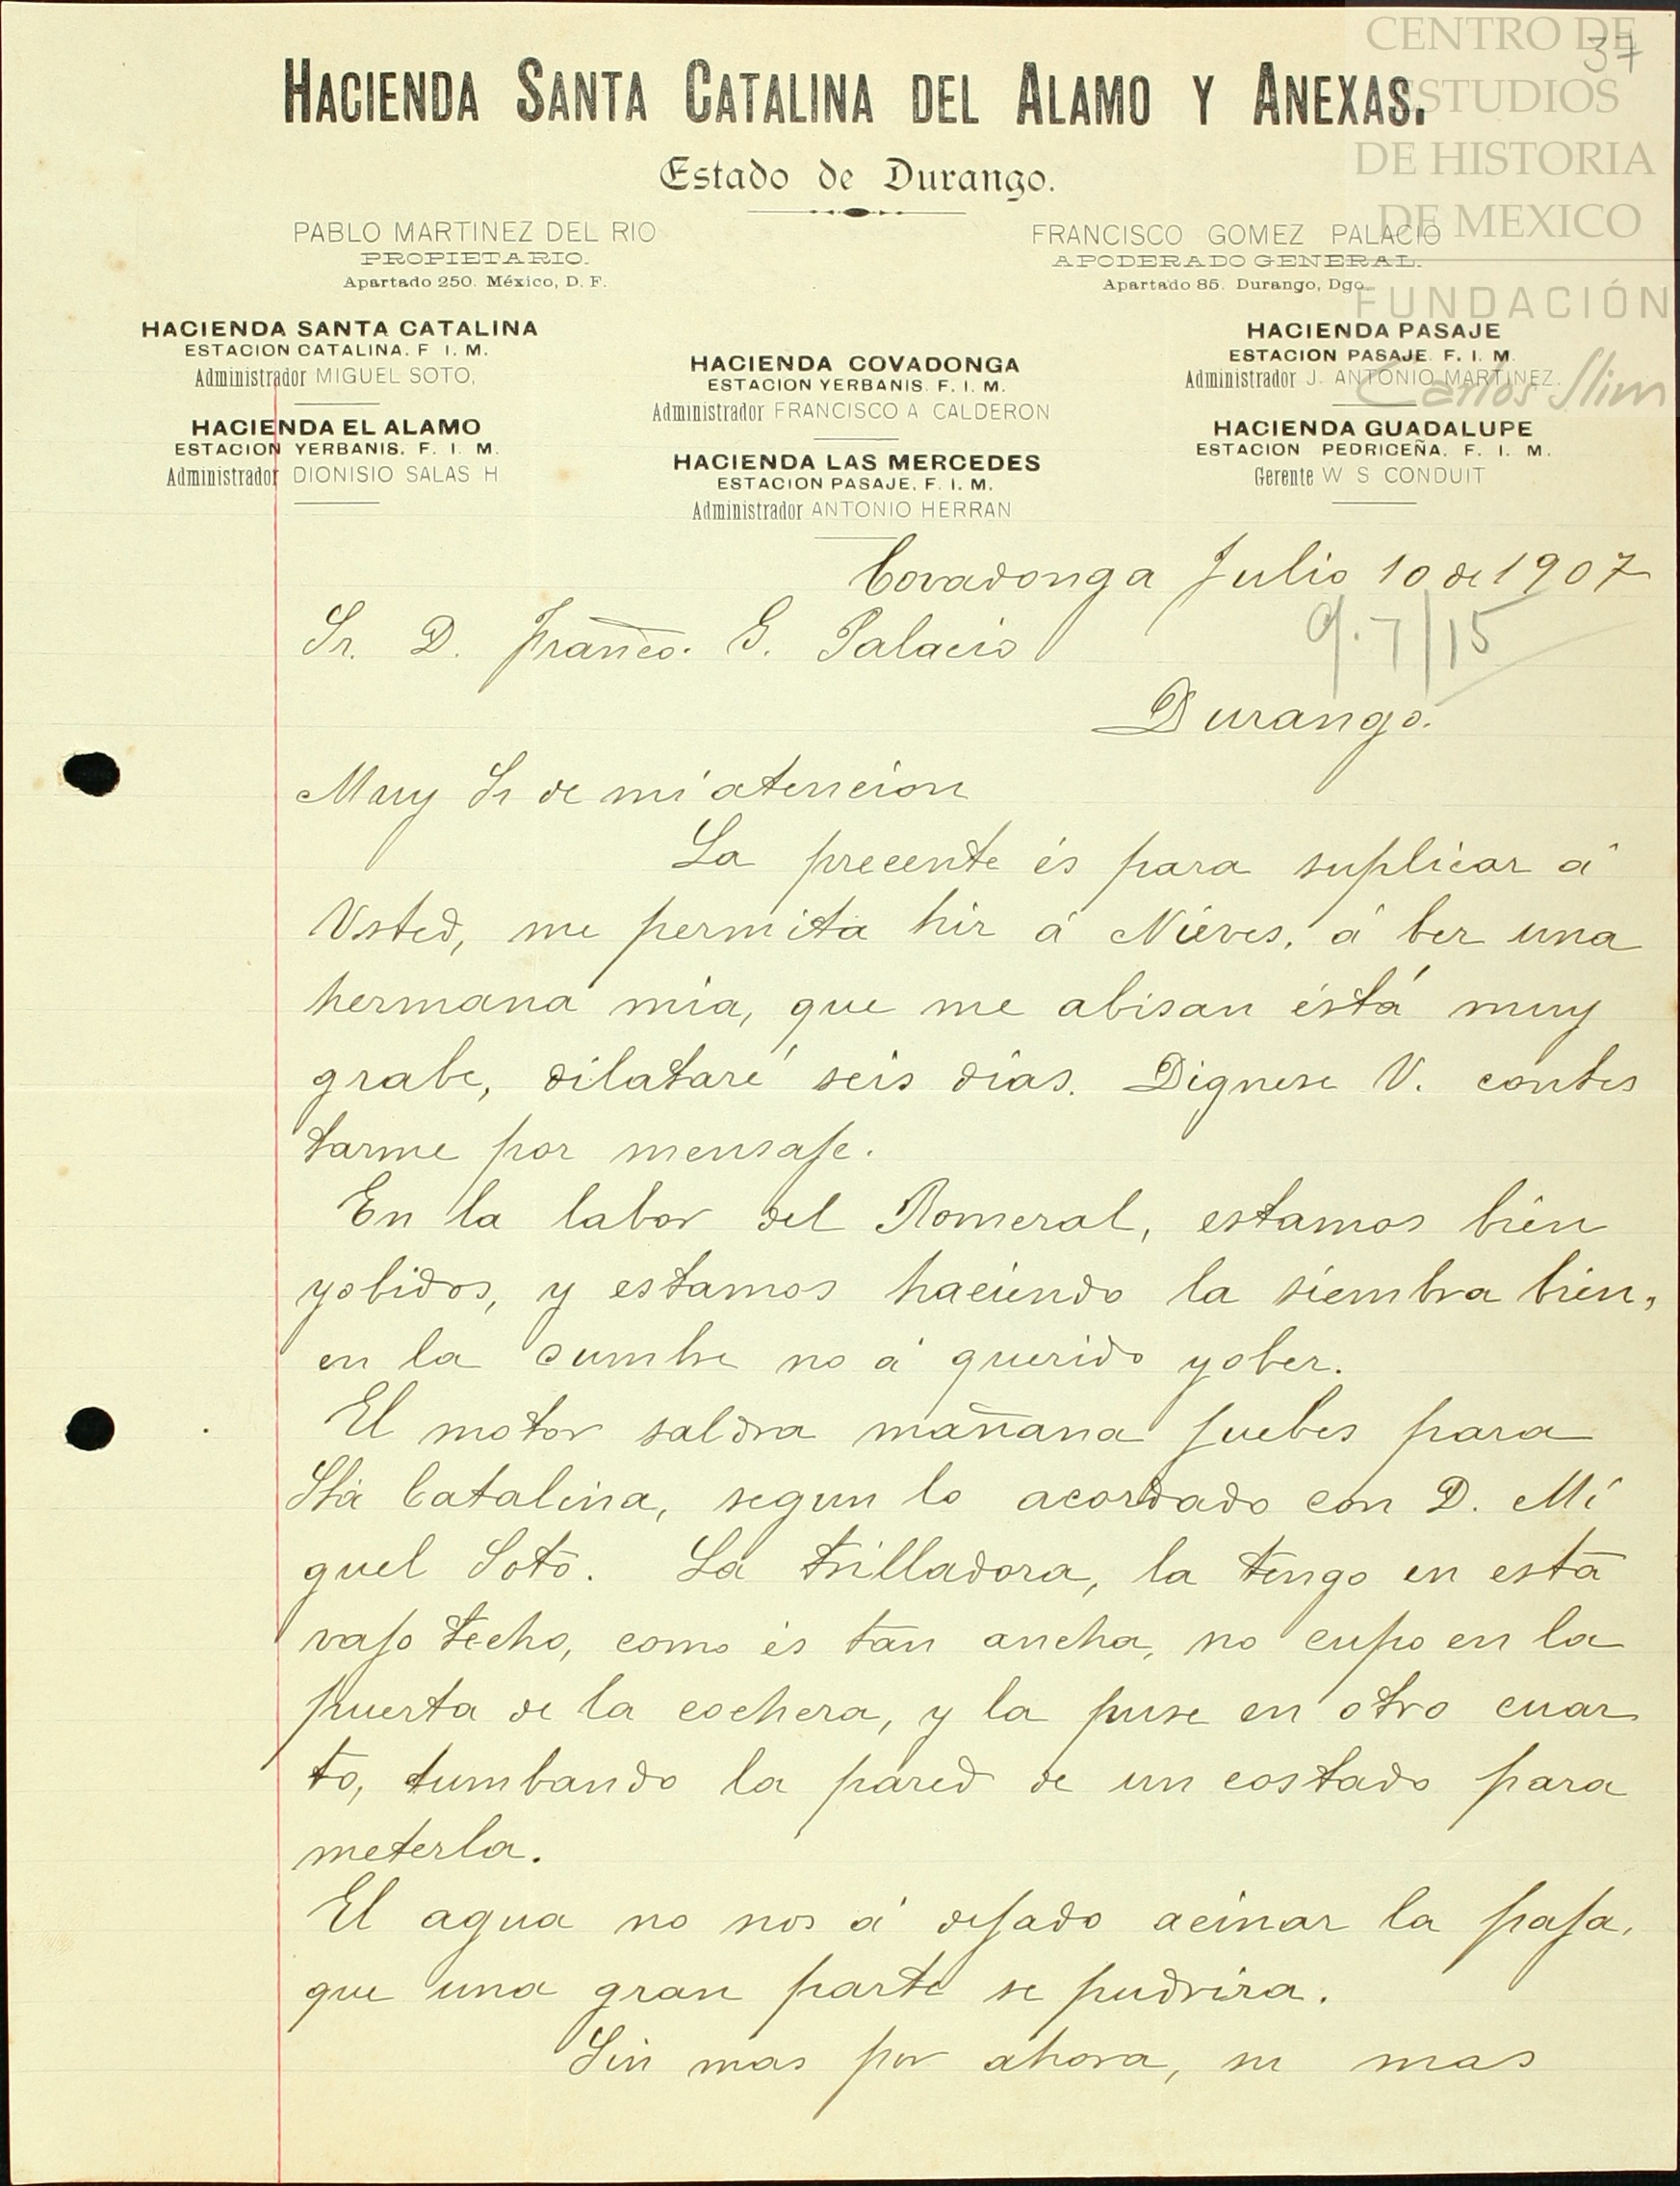 CENTRO DE
ESTUDIOS
DE HISTORIA
DE MEXICO
FUNDACIÓN
Carlos Slim
37
HACIENDA SANTA CATALINA DEL ALAMO Y ANEXAS.
Estado de Durango.
PABLO MARTINEZ DEL RIO
PROPIETARIO.
Apartado 250. México, D. F.
FRANCISCO GOMEZ PALACIO
APODERADO GENERAL.
Apartado 85. Durango, Dgo.
HACIENDA SANTA CATALINA
ESTACION CATALINA. F. I. M.
Administrador MIGUEL SOTO.
HACIENDA EL ALAMO
ESTACION YERBANIS. F. I. M.
Administrador DIONISIO SALAS H
HACIENDA COVADONGA
ESTACION YERBANIS. F. I. M.
Administrador FRANCISCO A CALDERON
HACIENDA LAS MERCEDES
ESTACION PASAJE. F. I. M.
Administrador ANTONIO HERRAN
HACIENDA PASAJE
ESTACION PASAJE. F. I. M.
Administrador J. ANTONIO MARTINEZ.
HACIENDA GUADALUPE
ESTACION PEDRICEÑA. F. I. M.
Gerente W S CONDUIT
Covadonga Julio 10 de 1907
Sr. D. Franco. G. Palacio
9.7/15
Durango.
Muy Sr de mi atencion
La precente és para suplicar á
Usted, me permita hir á Niéves, á ber una
hermana mia, que me abisan éstá muy
grabe, dilataré seis dias. Dignese V. contes
tarme por mensaje.
En la labor del Romeral, estamos bién
yobidos, y estamos haciendo la siembra bién,
en la cumbre no á querido yober.
El motor saldra mañana juebes para
Sta Catalina, segun lo acordado con D. Mi
guel Soto. La trilladora, la tengo en esta
vajo techo, como és tan ancha, no cupo en la
puerta de la cochera, y la puse en otro cuar
to, tumbando la pared de un costado para
meterla.
El agua no nos á dejado acinar la paja,
que una gran parte se pudrira.
Sin mas por ahora, su mas